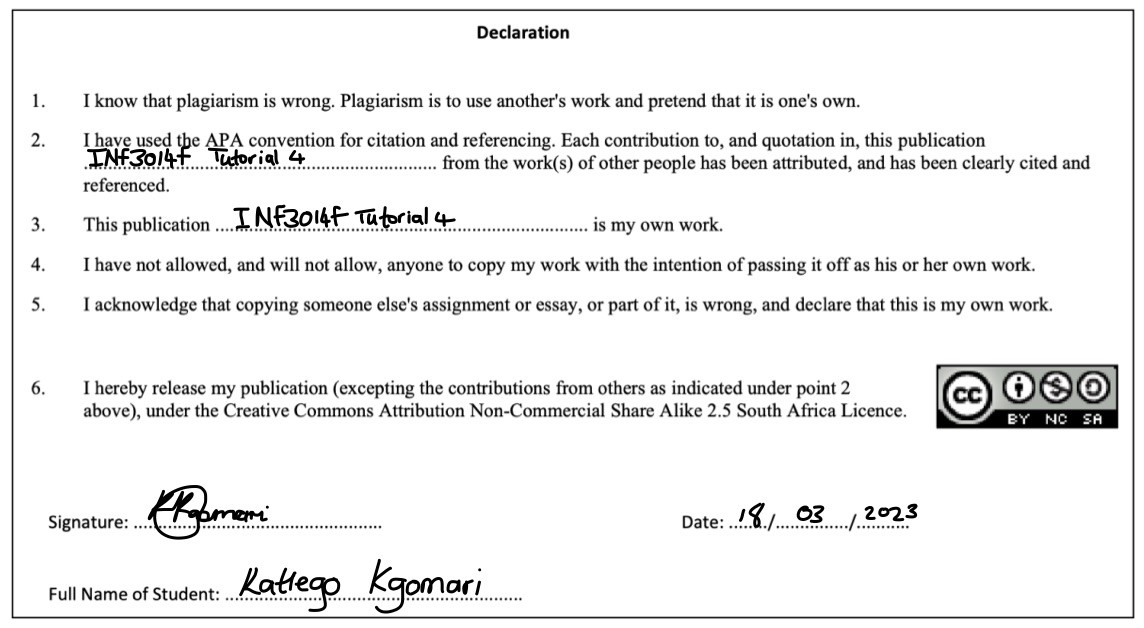 Declaration
1. I know that plagiarism is wrong. Plagiarism is to use another's work and pretend that it is one's own.
2. I have used the APA convention for citation and referencing. Each contribution to, and quotation in, this publication
INF3014F Tutorial 4 from the work(s) of other people has been attributed, and has been clearly cited and
referenced.
3. This publication ....INF3014F Tutorial 4.... is my own work.
4. I have not allowed, and will not allow, anyone to copy my work with the intention of passing it off as his or her own work.
5. I acknowledge that copying someone else's assignment or essay, or part of it, is wrong, and declare that this is my own work.
6. I hereby release my publication (excepting the contributions from others as indicated under point 2
above), under the Creative Commons Attribution Non-Commercial Share Alike 2.5 South Africa Licence.
cc
BY NC SA
Signature: KKgomari
Date: 18/03/2023
Full Name of Student: Katlego Kgomari